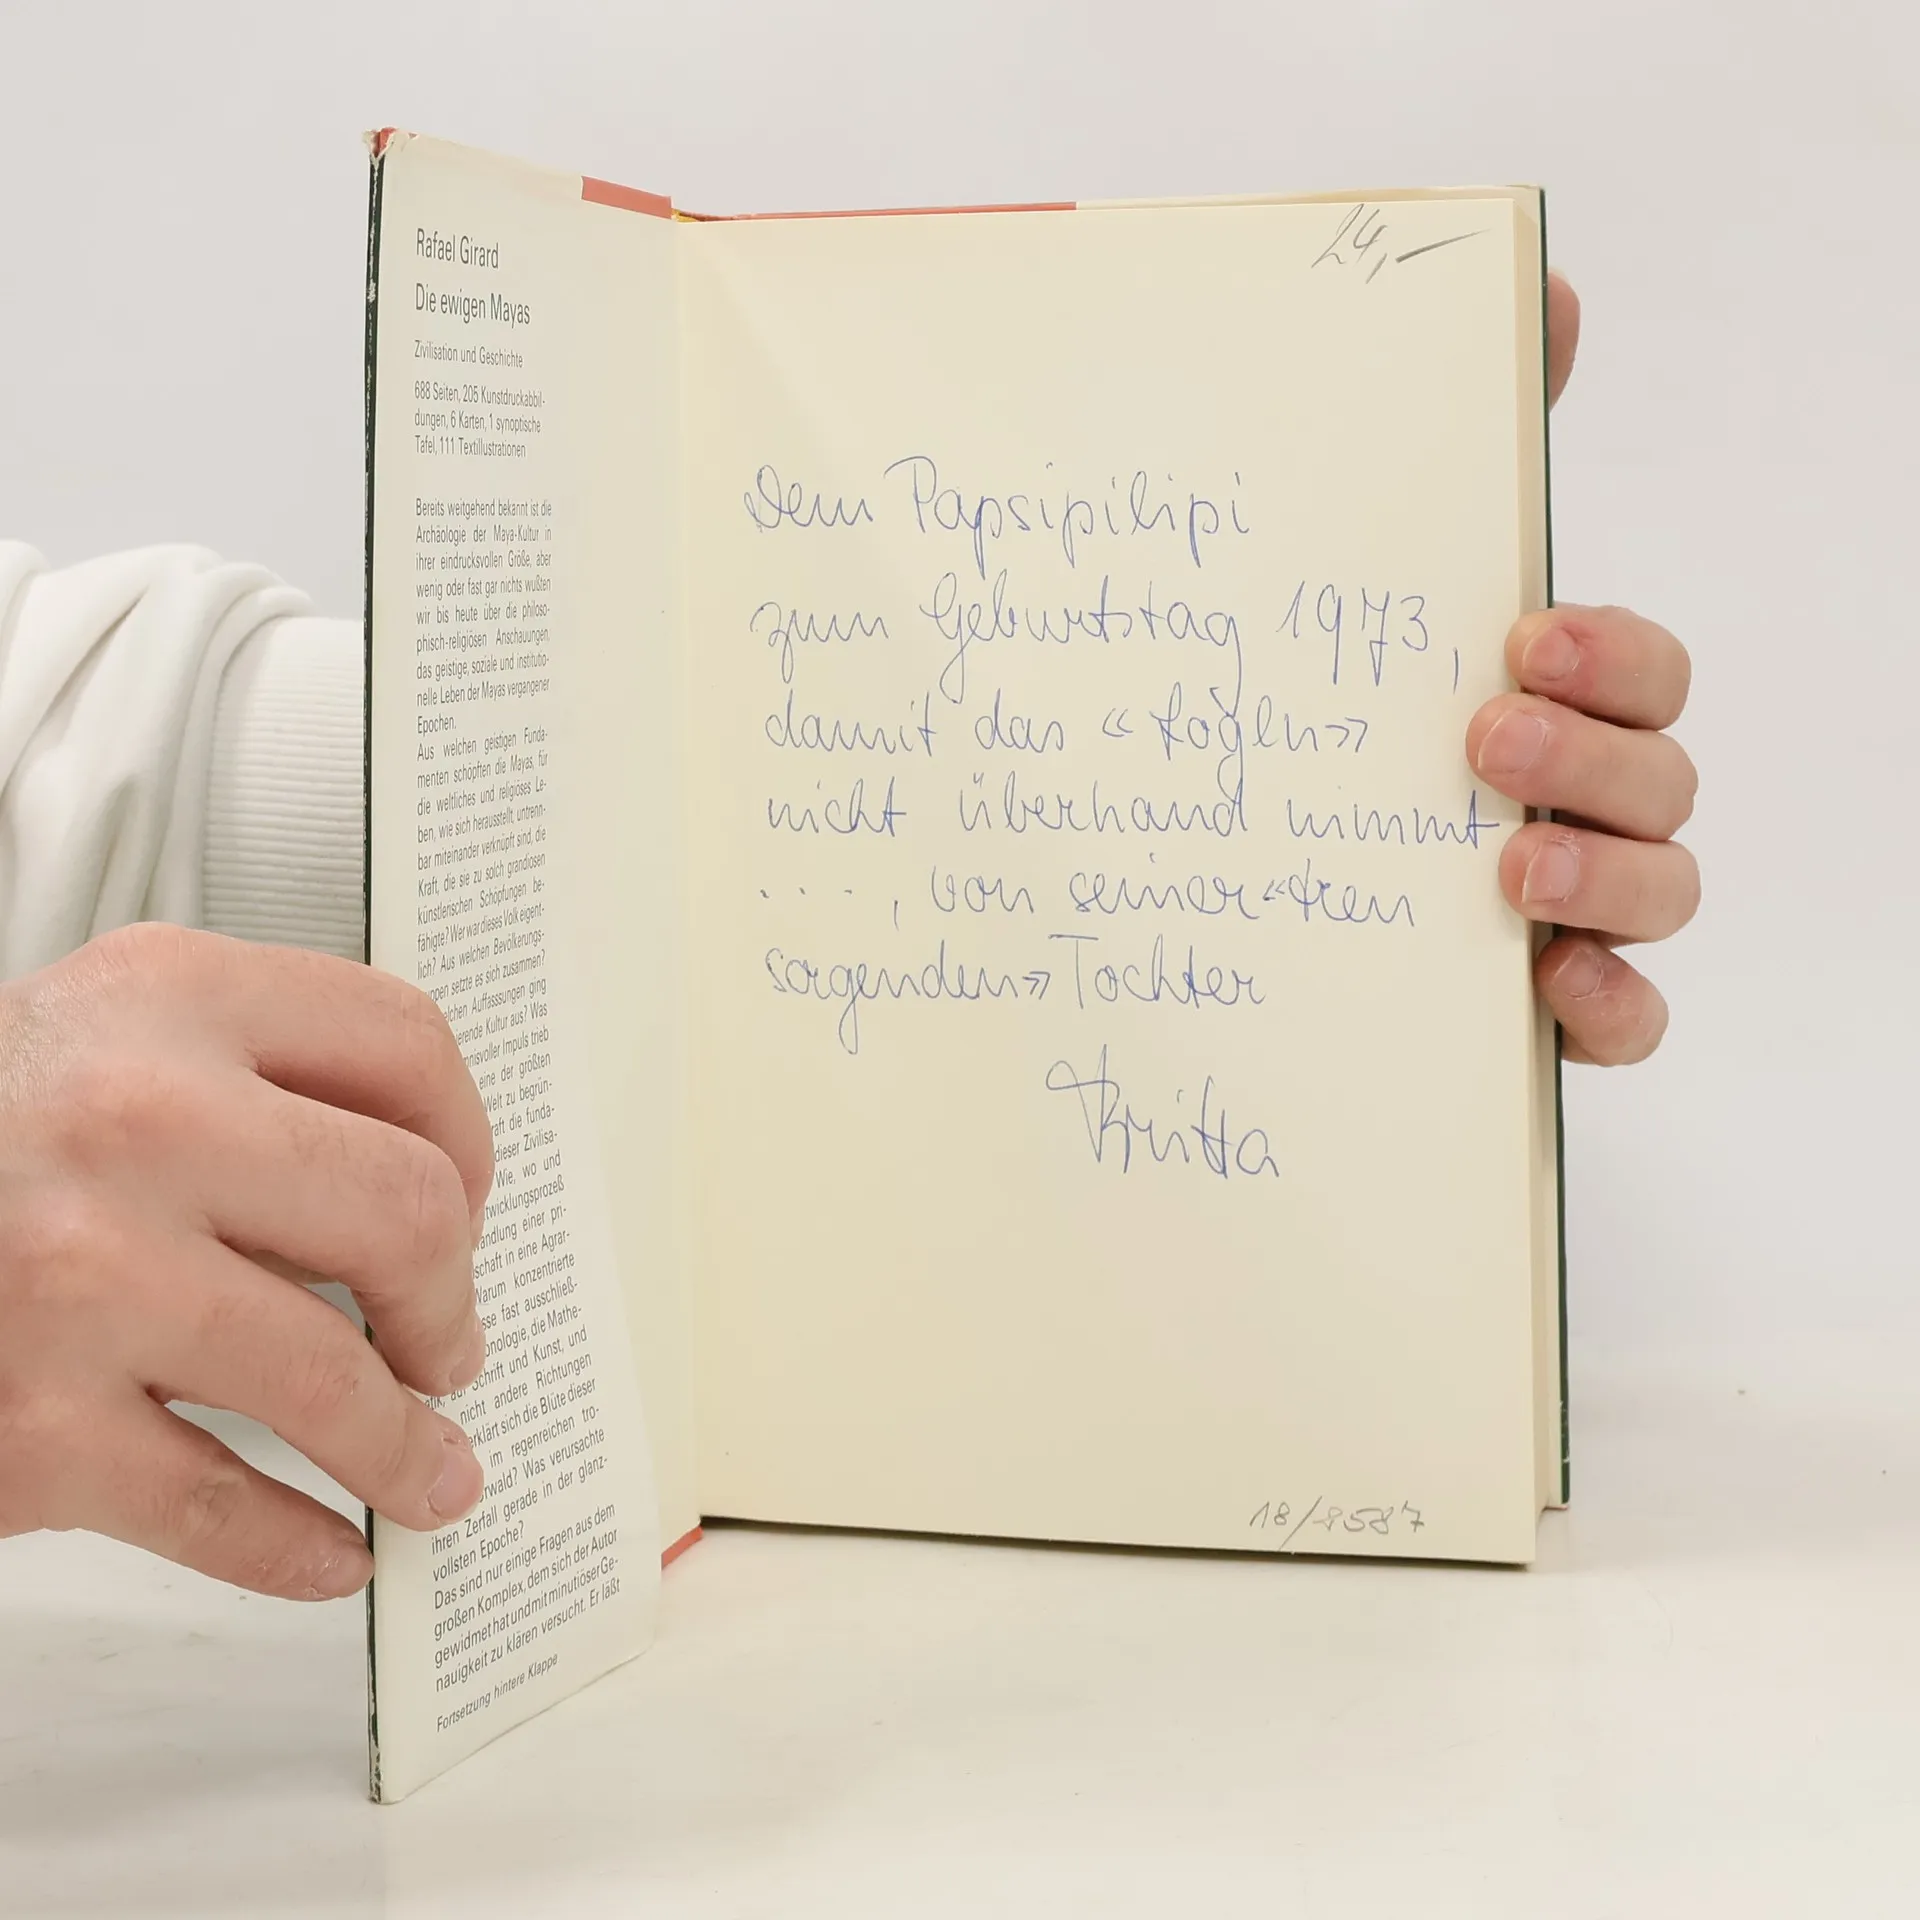 Rafael Girard
Die ewigen Mayas
Zivilisation und Geschichte
688 Seiten, 205 Kunstdruckabbil-
dungen, 6 Karten, 1 synoptische
Tafel, 111 Textillustrationen
Bereits weitgehend bekannt ist die
Archäologie der Maya-Kultur in
ihrer eindrucksvollen Größe, aber
wenig oder fast gar nichts wußten
wir bis heute über die philoso-
phisch-religiösen Anschauungen,
das geistige, soziale und institutio-
nelle Leben der Mayas vergangener
Epochen.
Aus welchen geistigen Funda-
menten schöpften die Mayas, für
die weltliches und religiöses Le-
ben, wie sich herausstellt, untrenn-
bar miteinander verknüpft sind, die
Kraft, die sie zu solch grandiosen
künstlerischen Schöpfungen be-
fähigte? Wer war dieses Volk eigent-
lich? Aus welchen Bevölkerungs-
ppen setzte es sich zusammen?
elchen Auffasssungen ging
ierende Kultur aus? Was
nisvoller Impuls trieb
eine der größten
Welt zu begrün-
raft die funda-
dieser Zivilisa-
Wie, wo und
twicklungsprozeß
andlung einer pri-
schaft in eine Agrar-
Warum konzentrierte
sse fast ausschließ-
onologie, die Mathe-
atik, auf Schrift und Kunst, und
nicht andere Richtungen
erklärt sich die Blüte dieser
im regenreichen tro-
rwald? Was verursachte
ihren Zerfall gerade in der glanz-
vollsten Epoche?
Das sind nur einige Fragen aus dem
großen Komplex, dem sich der Autor
gewidmet hat und mit minutiöser Ge-
nauigkeit zu klären versucht. Er läßt
Fortsetzung hintere Klappe
24,—
Dem Papsipilipi
zum Geburtstag 1973,
damit das « »
nicht überhand nimmt
. . . . , von seiner «treu
sorgenden» Tochter
Britta
18/8587